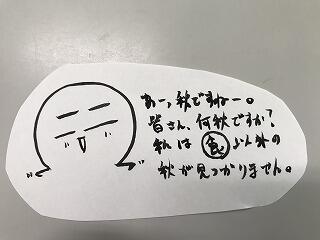 あーっ秋ですねー。
皆さん、何秋ですか?
私は食以外の
秋が見つかりません。